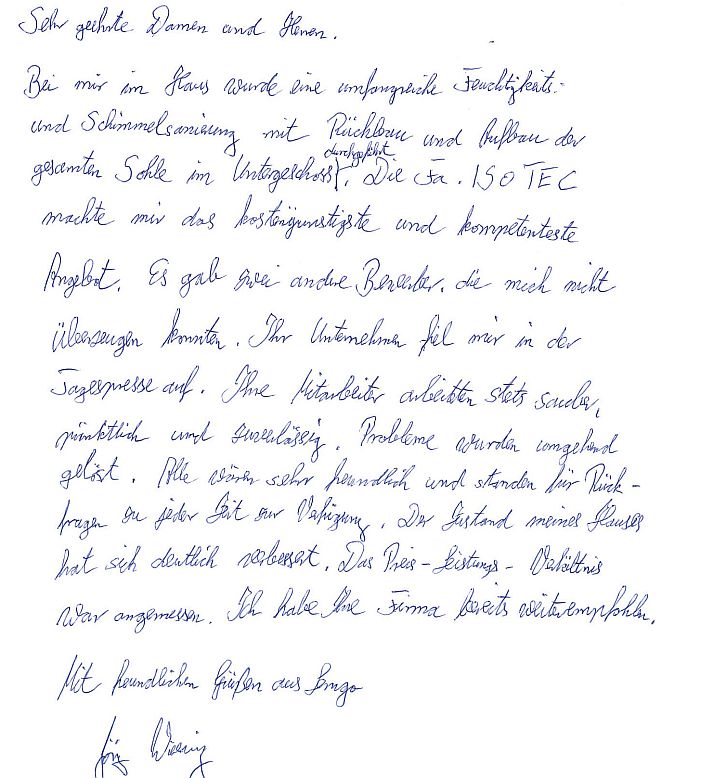 Sehr geehrte Damen und Herren.
Bei mir im Haus wurde eine umfangreiche Feuchtigkeits-
und Schimmelsanierung mit Rückbau und Aufbau der
gesamten Sohle im Untergeschoss durchgeführt. Die Fa. ISOTEC
machte mir das kostengünstigste und kompetenteste
Angebot. Es gab zwei andere Bewerber, die mich nicht
überzeugen konnten. Ihr Unternehmen fiel mir in der
Tagespresse auf. Ihre Mitarbeiter arbeiteten stets sauber,
pünktlich und zuverlässig. Probleme wurden umgehend
gelöst. Alle waren sehr freundlich und standen für Rück-
fragen zu jeder Zeit zur Verfügung. Der Zustand meines Hauses
hat sich deutlich verbessert. Das Preis-Leistungs-Verhältnis
war angemessen. Ich habe Ihre Firma bereits weiterempfohlen.
Mit freundlichen Grüßen aus
Jörg